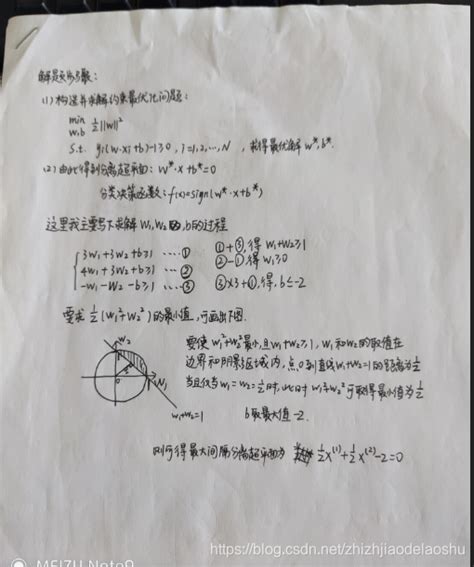 解题步骤:
(1) 构造并求解约束最优化问题:
min 1/2||w||²
w,b
s.t. yi(w·xi+b)-1≥0, i=1,2,...,N, 求得最优解 w*,b*.
(2) 由此得到分离超平面: w*·x+b*=0
分类决策函数: f(x)=sign(w*·x+b*)
这里我主要写下求解 w1,w2,b的过程
3w1+3w2+b≥1 ····①
4w1+3w2+b≥1 ····②
-w1-w2-b≥1 ····③
①+③,得 w1+w2≥1
②-①,得 w1≥0
③×3+①,得, b≤-2
要求 1/2(w1²+w2²)的最小值,可画出下图.
w2
0
w1
w1+w2=1
要使 w1²+w2²最小,且w1+w2≥1, w1和w2的取值在
边界和阴影区域内, 点0到直线w1+w2=1的距离为
当且仅当 w1=w2=1/2时,此时 w1²+w2²可取得最小值为1/2
b取最大值-2.
则可得最大间隔分离超平面为 1/2x⁽¹⁾+1/2x⁽²⁾-2=0
https://blog.csdn.net/zhizhjiaodelaoshu
MEIZU Note9